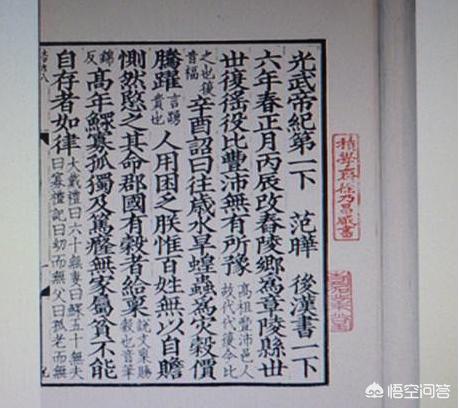 光武帝紀第一下 范曄 後漢書一下
六年春正月丙辰改舂陵鄉為章陵縣世
世復徭役比豐沛無有所豫 高祖豐沛邑人故代代復今比
之也復音福 辛酉詔曰往歲水旱蝗蟲為災穀價
騰躍 言踴貴也 人用困乏朕惟百姓無以自贍
惻然愍之其命郡國有穀者給稟 說文稟賜穀也音筆
錦反 高年鰥寡孤獨及篤癃無家屬貧不能
自存者如律 大戴禮曰六十無妻曰鰥五十無夫曰寡禮記曰幼而無父曰孤老而無
積學齋徐乃昌藏書
悟空问答